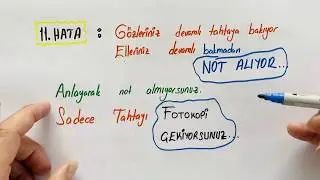 11. HATA : Gözleriniz devamlı tahtaya bakıyor
Elleriniz devamlı bakmadan
NOT ALIYOR...
Anlayarak not almıyorsunuz.
Sadece Tahtayı FOTOKOPİ
ÇEKİYORSUNUZ...